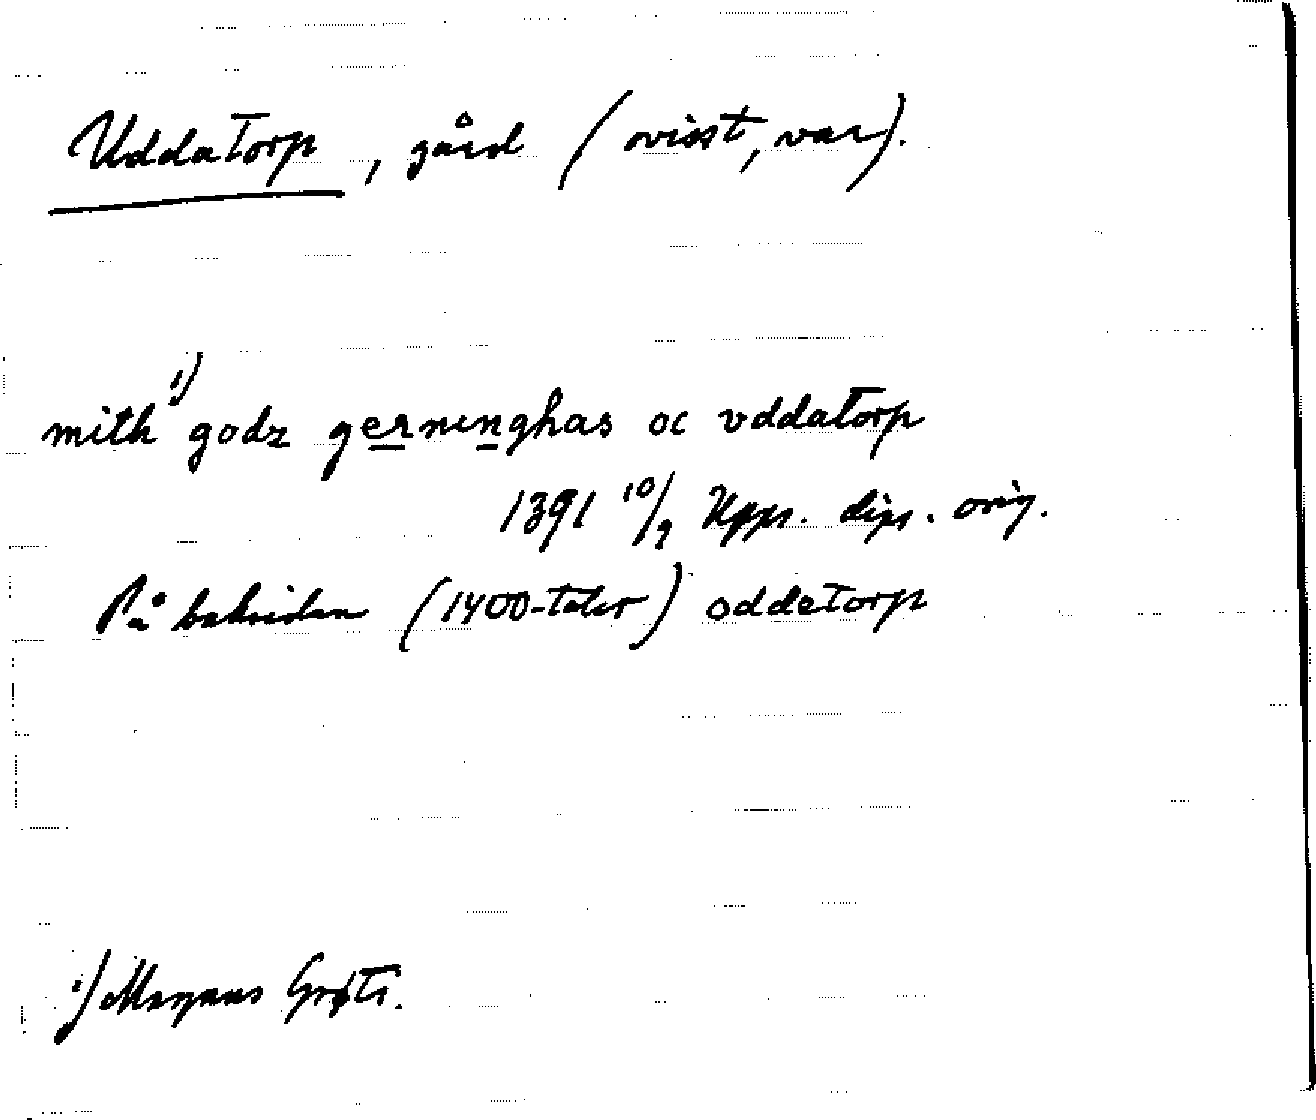 Uddatorp, gård (ovisst, var).
mith ¹) godz gerninghas oc vddatorp
1391 10/9 Upps. dipl. orig.
På baksidan (1400-talet) oddetorp
¹) Magnus